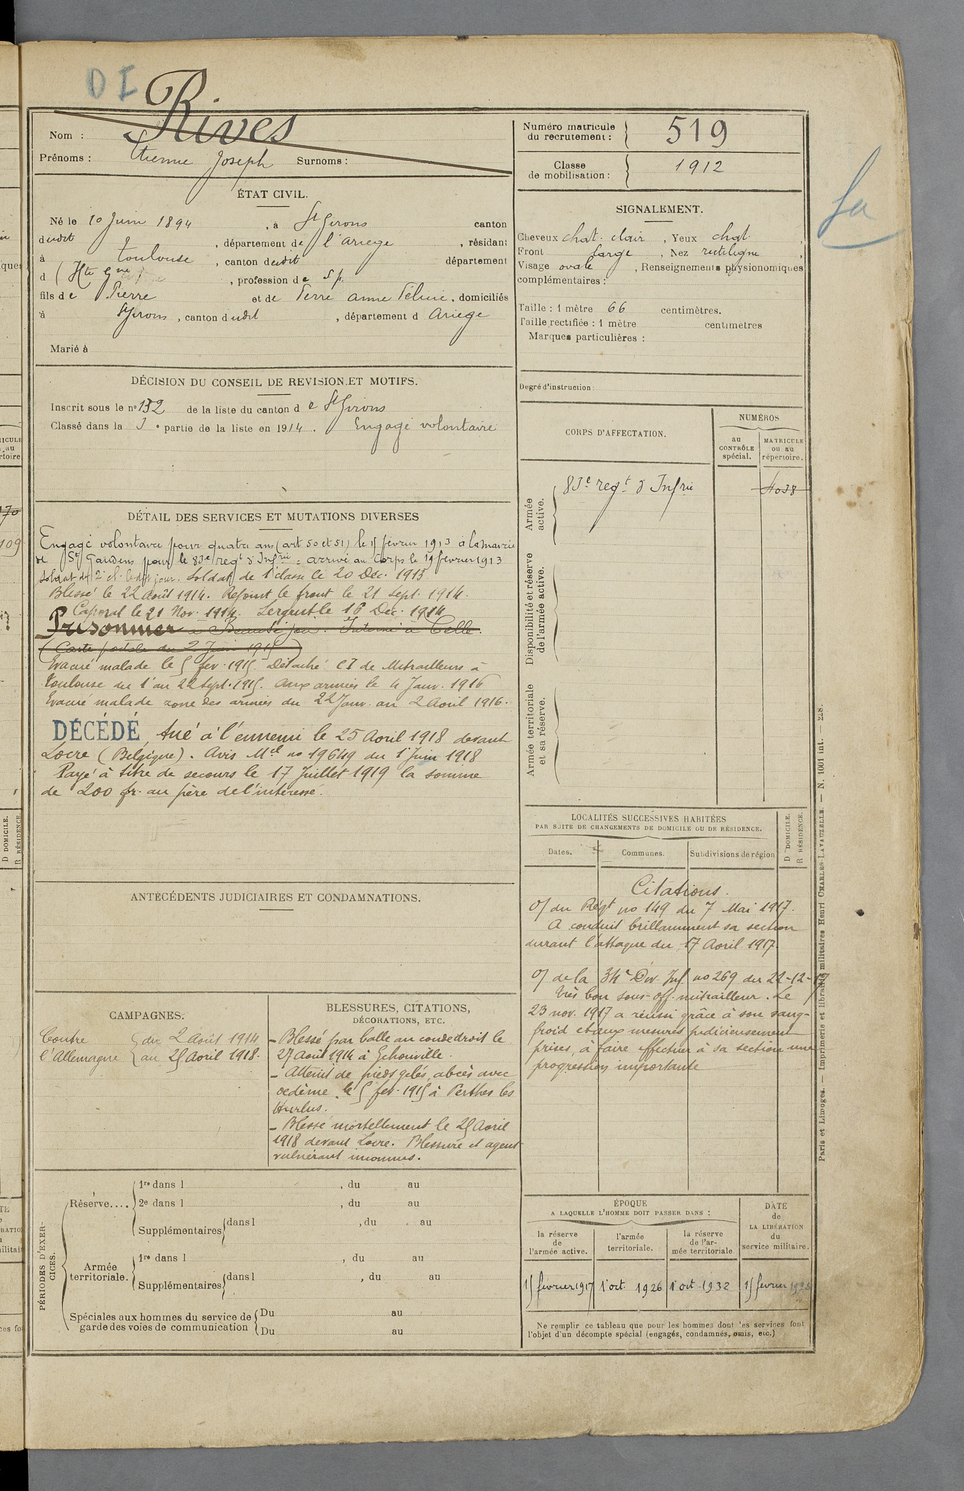 DI
Nom : Rives
Prénoms : Etienne Joseph Surnoms :
Numéro matricule
du recrutement : 519
Classe
de mobilisation : 1912
ÉTAT CIVIL.
Né le 10 Juin 1894, à St Girons canton
dudit, département de l'Ariège, résidant
à Toulouse, canton dudit département
d (Hte Gne, profession de S.p.
fils de Pierre et de Terré Anne Céline, domiciliés
à St Girons, canton dudit, département d Ariège
Marié à
SIGNALEMENT.
Cheveux chat. clair, Yeux chat
Front large, Nez rectiligne,
Visage ovale, Renseignements physionomiques
complémentaires :
Taille : 1 mètre 66 centimètres.
Taille rectifiée : 1 mètre centimètres
Marques particulières :
Degré d'instruction
DÉCISION DU CONSEIL DE REVISION ET MOTIFS.
Inscrit sous le n° 132 de la liste du canton de St Girons
Classé dans la 3e partie de la liste en 1914. Engagé volontaire
CORPS D'AFFECTATION.
NUMÉROS
au
CONTRÔLE
spécial.
MATRICULE
ou au
répertoire.
Armée
active.
83e regt d'Infrie
4038
Disponibilité et réserve
de l'armée active.
Armée territoriale
et sa réserve.
DÉTAIL DES SERVICES ET MUTATIONS DIVERSES
Engagé volontaire pour quatre ans (art 50 et 51) le 15 février 1913 à la mairie
de St Gaudens pour le 83e regt d'Infrie = arrivé au Corps le 19 février 1913
Soldat de 2e cl. le dit jour. Soldat de 1e classe le 20 Dec. 1913
Blessé le 22 août 1914. Rejoint le front le 21 sept. 1914.
Caporal le 21 Nov. 1914. Sergent le 16 Dec. 1914
Prisonnier à Interné à Celle.
(Carte postale du 2 Juin 191
Evacué malade le 5 fev. 1915. Détaché CI de Mitrailleurs à
Toulouse du 1 au 22 Sept. 1915. aux armées le 4 Janv. 1916
Evacué malade zone des armées du 22 Janv. au 2 Avril 1916.
DÉCÉDÉ, tué à l'ennemi le 25 Avril 1918 devant
Locre (Belgique). Avis Mel no 19649 du 1 Juin 1918
Payé à titre de secours le 17 Juillet 1919 la somme
de 200 fr. au père de l'intéressé.
LOCALITÉS SUCCESSIVES HABITÉES
PAR SUITE DE CHANGEMENTS DE DOMICILE OU DE RÉSIDENCE.
Dates.
Communes.
Subdivisions de région
D DOMICILE.
R RÉSIDENCE.
Citations.
O/ du Régt no 149 du 7 Mai 1917.
A conduit brillamment sa section
durant l'attaque du 17 Avril 1917
O/ de la 34e Div Inf no 269 du 22-12-17
Très bon sous-off. mitrailleur. Le
23 nov. 1917 a réussi grâce à son sang-
froid et aux mesures judicieusement
prises, à faire effectuer à sa section une
progression importante
ANTÉCÉDENTS JUDICIAIRES ET CONDAMNATIONS.
CAMPAGNES.
Contre
l'Allemagne
du 2 Août 1914
au 25 Avril 1918.
BLESSURES, CITATIONS,
DÉCORATIONS, ETC.
- Blessé par balle au coude droit le
27 août 1914 à
- Atteint de pieds gelés, abcès avec
œdème, le 5 fev. 1915 à Perthes les
Hurlus.
- Blessé mortellement le 25 Avril
1918 devant Locre. Blessure et agent
vulnérant inconnus.
PÉRIODES D'EXERCICES.
Réserve....
1re dans l , du au
2e dans l , du au
Supplémentaires dans l , du au
Armée
territoriale.
1re dans l , du au
Supplémentaires dans l , du au
Spéciales aux hommes du service de
garde des voies de communication
Du au
Du au
ÉPOQUE
A LAQUELLE L'HOMME DOIT PASSER DANS :
la réserve
de
l'armée active.
l'armée
territoriale.
la réserve
de l'ar-
mée territoriale
DATE
de
LA LIBÉRATION
du
service militaire.
15 février 1917
1 oct. 1926
1 oct. 1932
15 février
Ne remplir ce tableau que pour les hommes dont les services font
l'objet d'un décompte spécial (engagés, condamnés, omis, etc.)
Paris et Limoges. — Imprimerie et librairie militaires Henri CHARLES-LAVAUZELLE. — N. 1001 int. — 228.